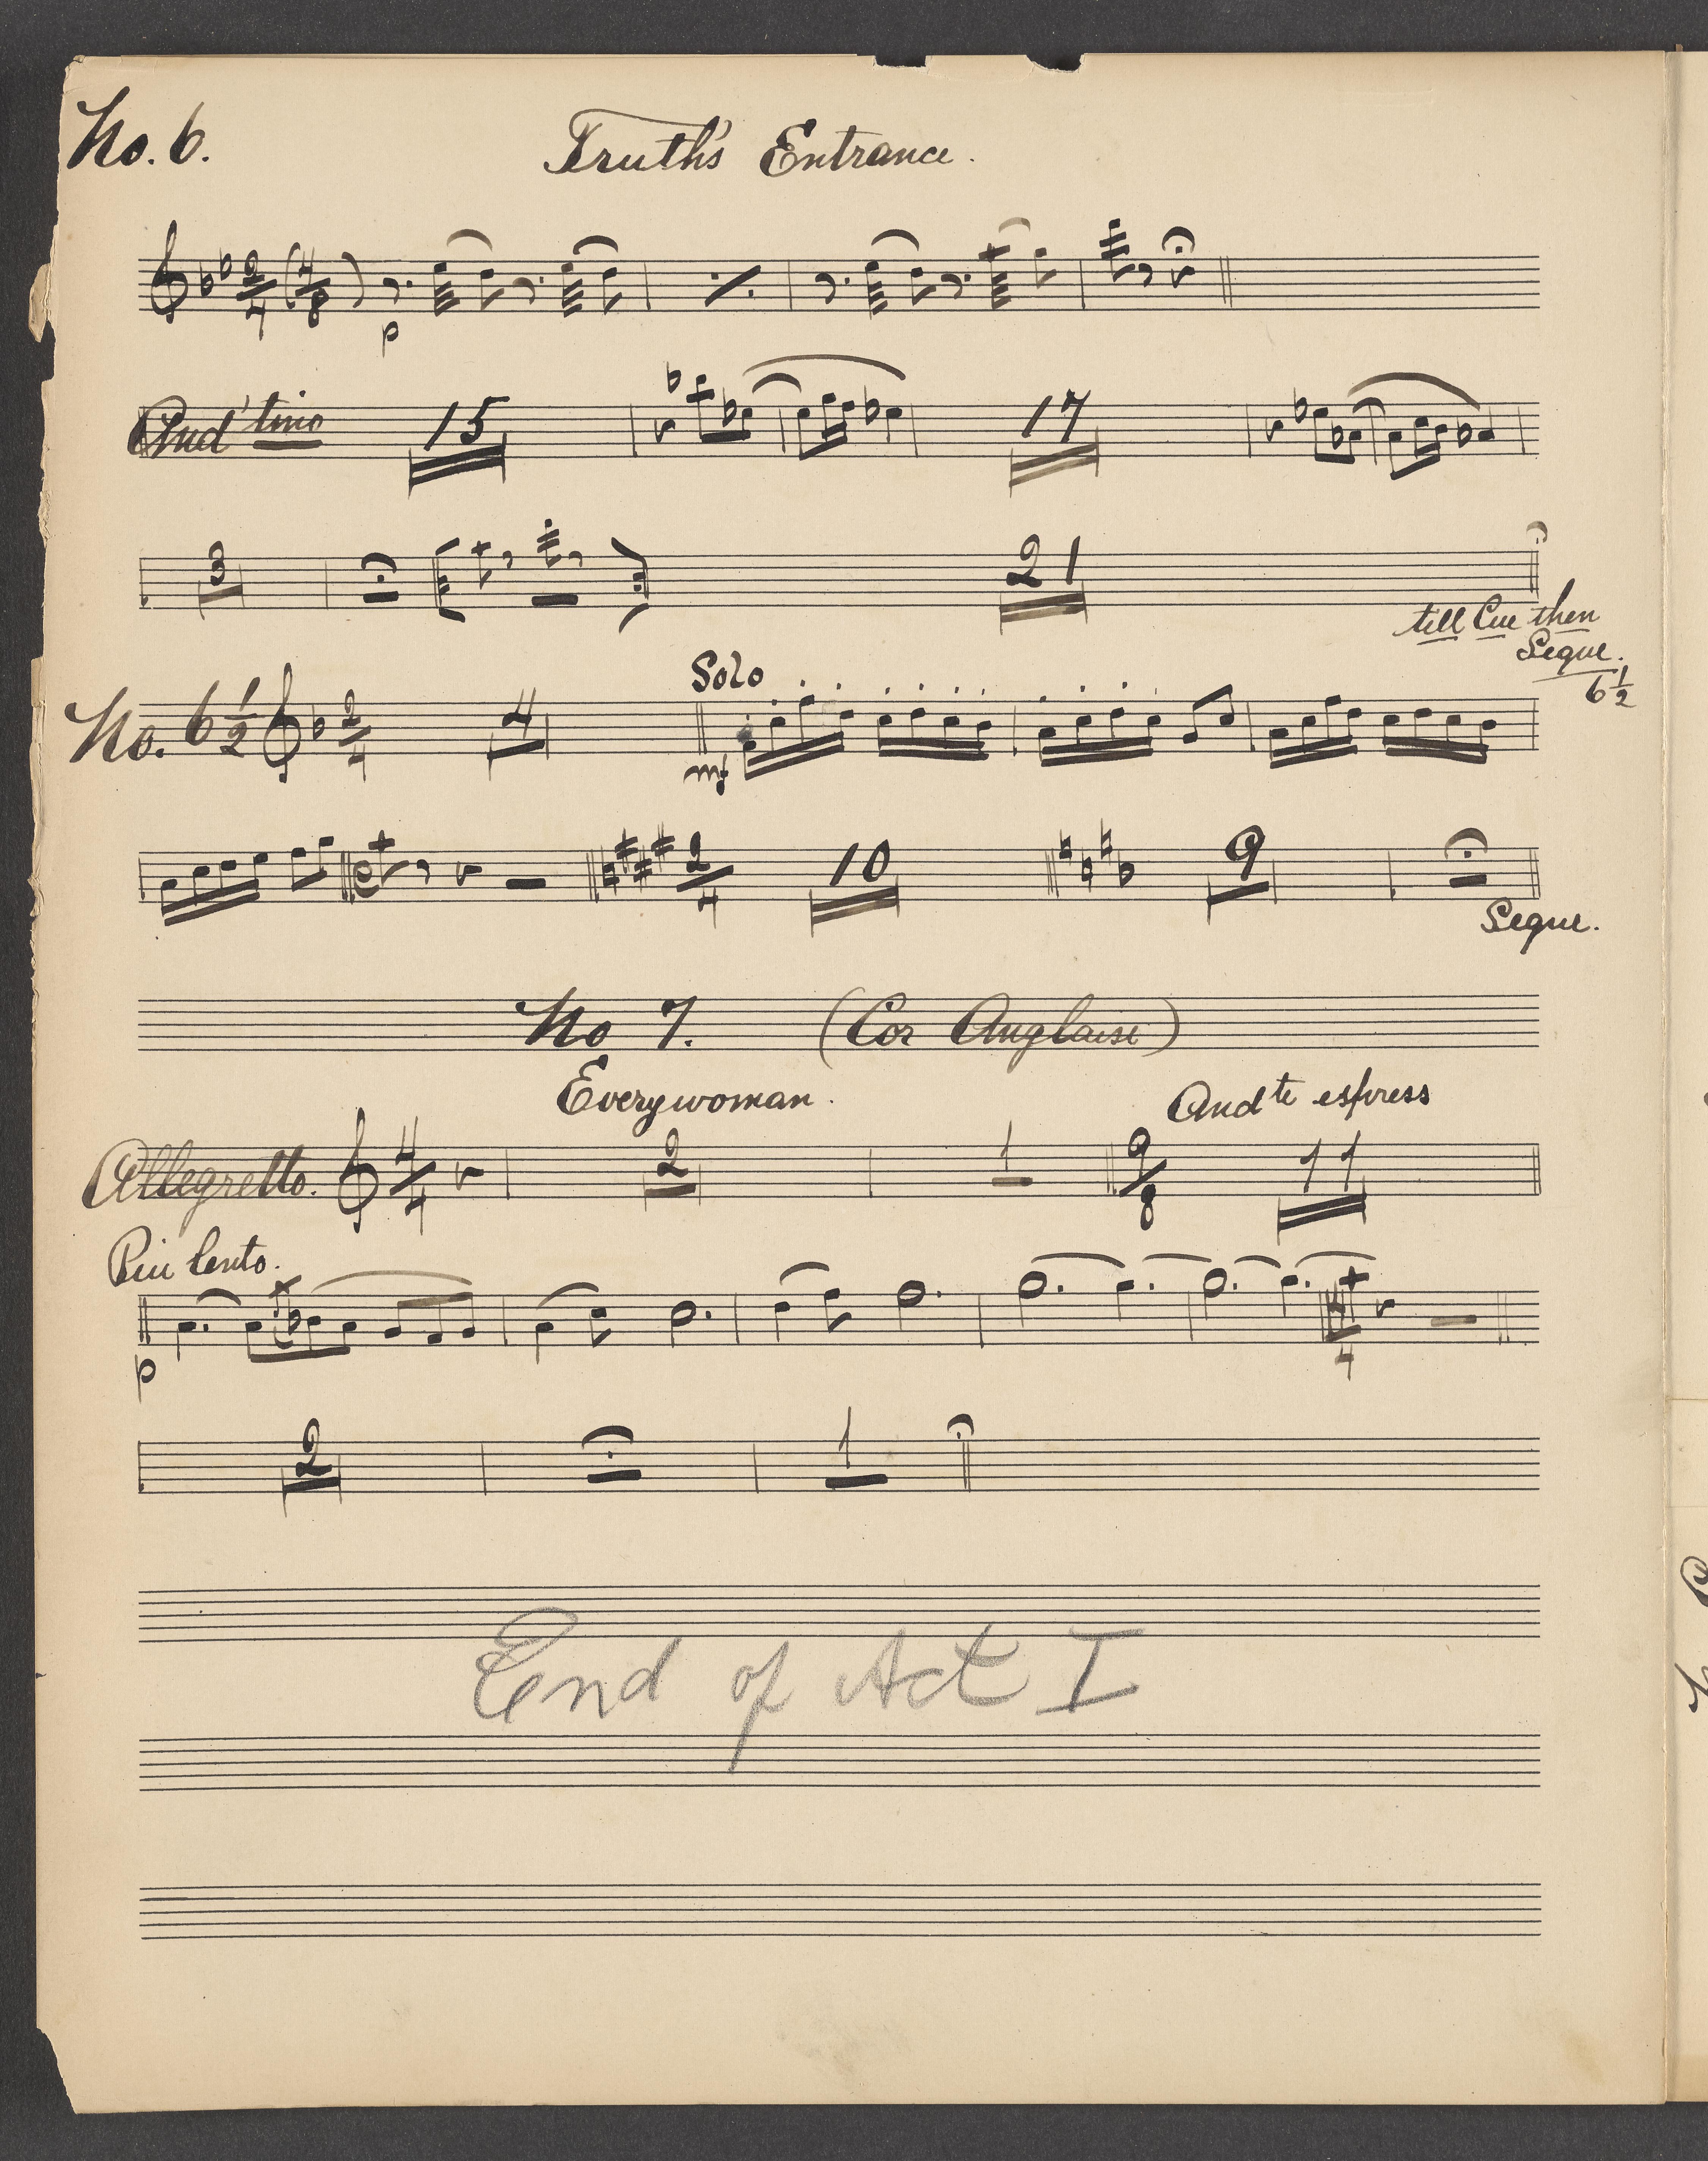 No. 6.
Truth's Entrance.
2 4 (4 8)
p
And'tino 15 17
3 21
till Cue then
Segue.
6 1/2
Solo
No. 6 1/2 2 4 4
mf
2 4 10 9
Segue.
No 7. (Cor Anglaise)
Everywoman.
Andte espress
Allegretto. 4 4 2 1 9 8 11
Piu lento.
p
4 4
2 1
End of Act I